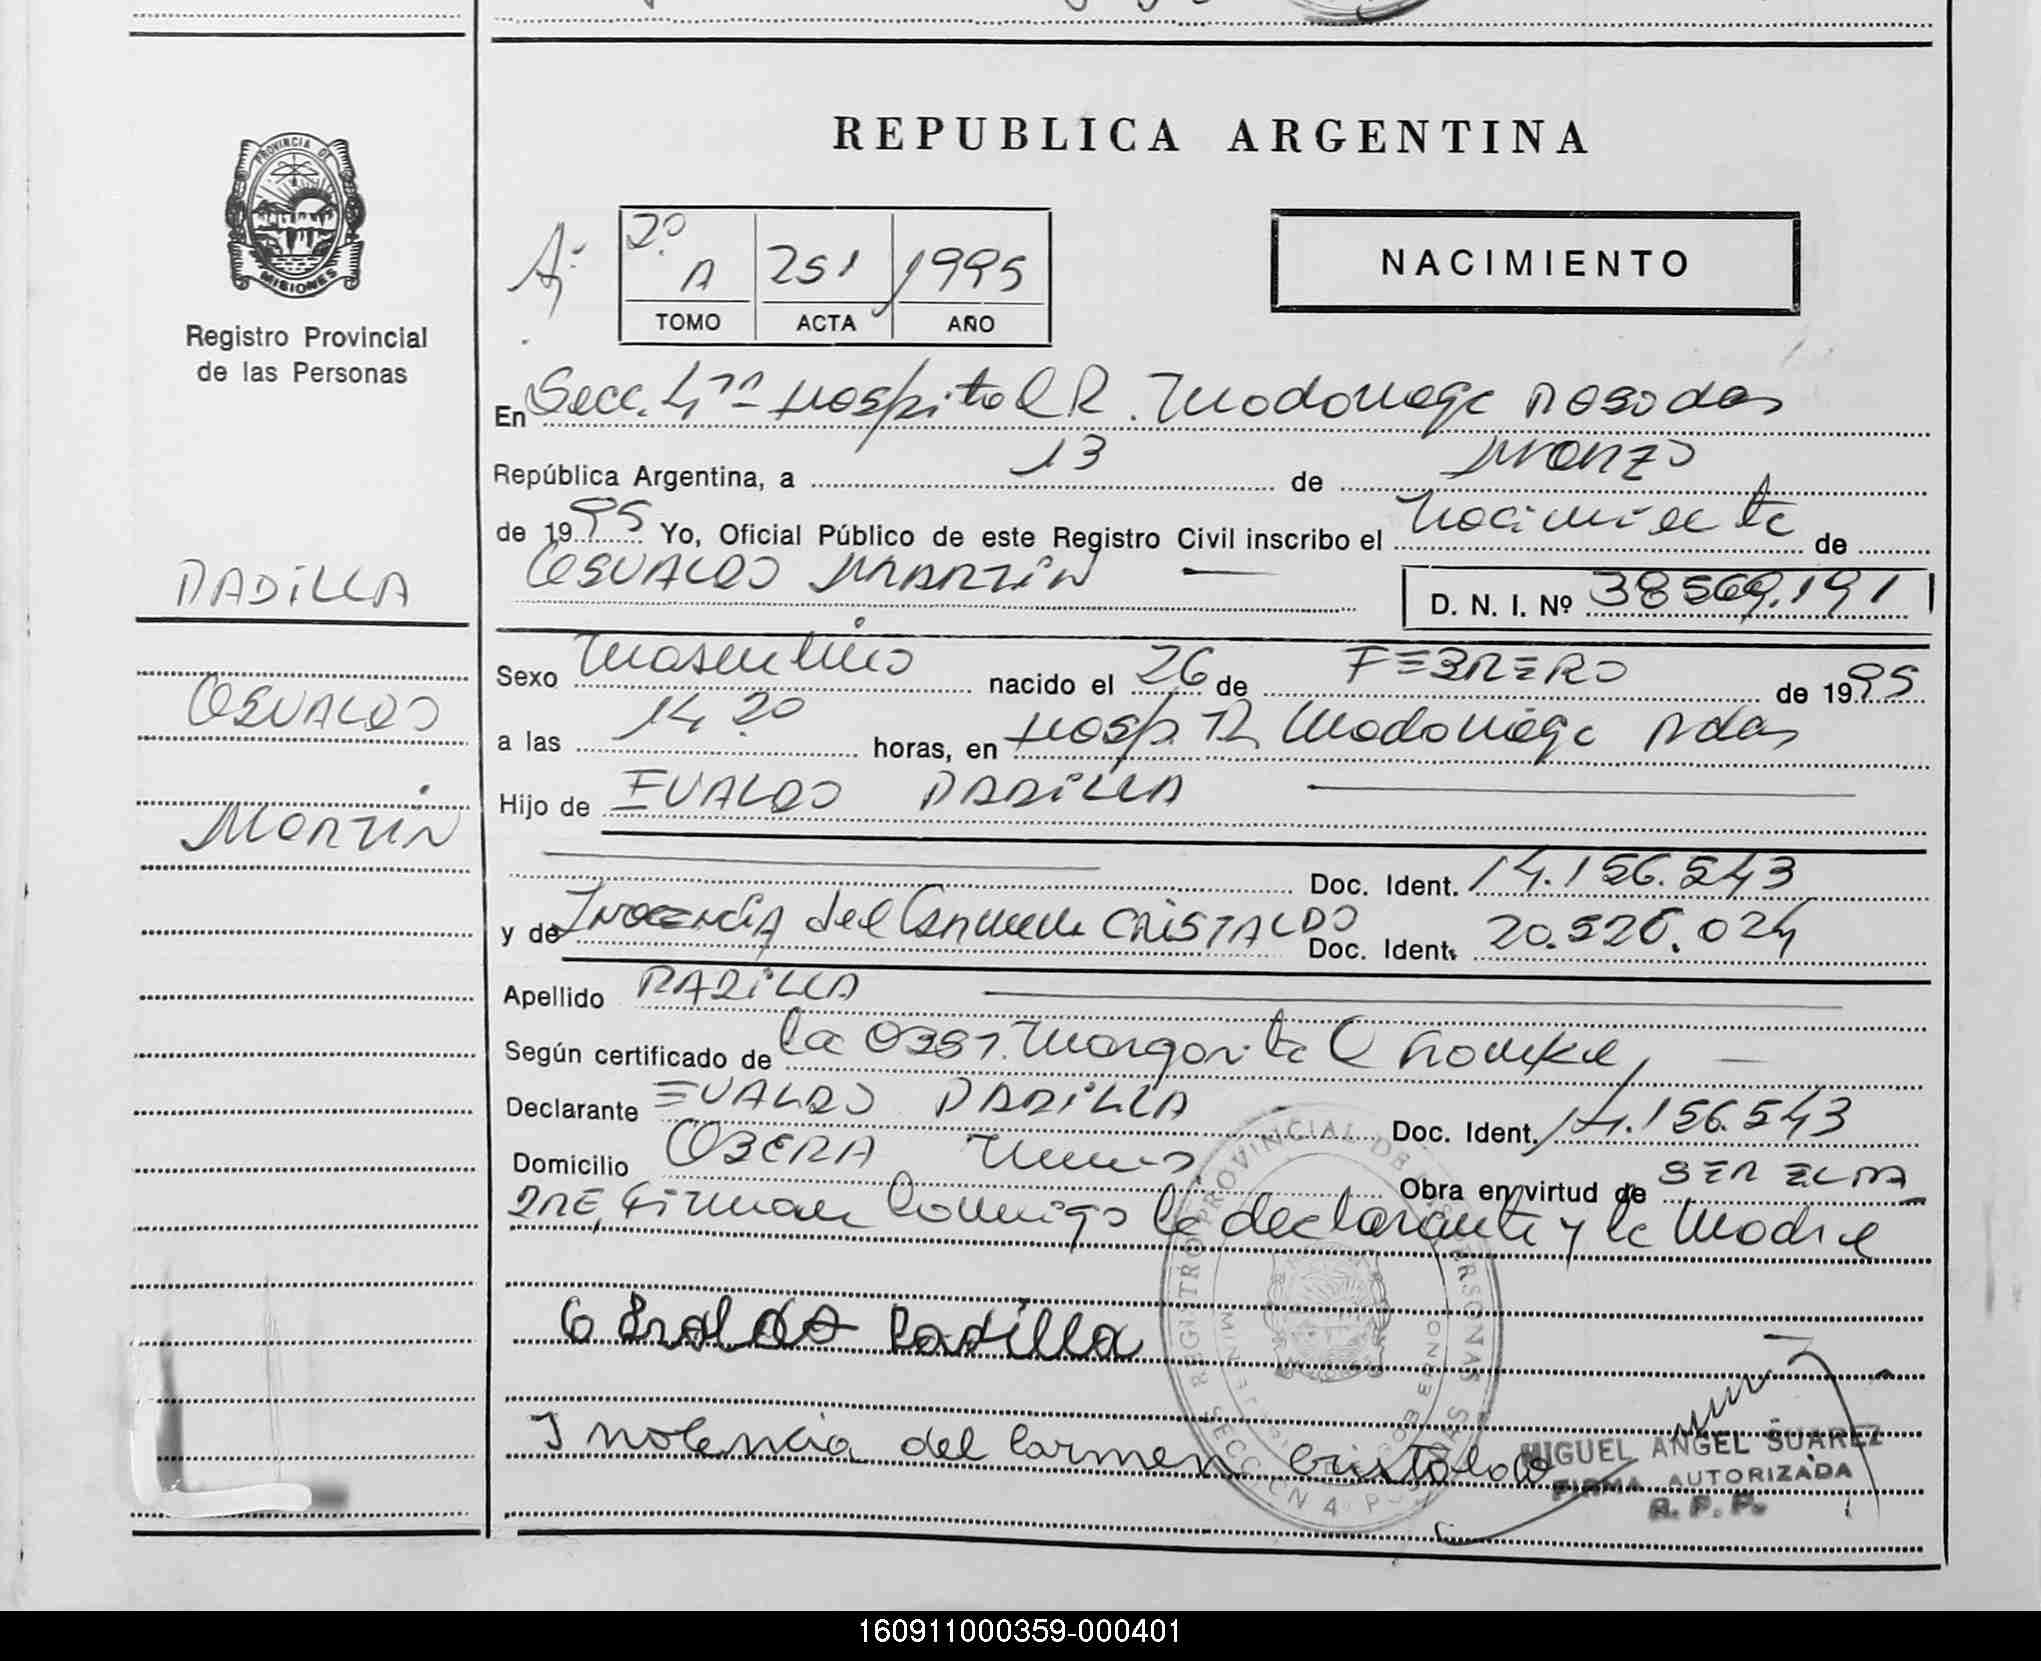 REPUBLICA ARGENTINA
PROVINCIA DE
MISIONES
Registro Provincial
de las Personas
PADILLA
OSVALDO
Martin
2º A 251 1995
TOMO ACTA AÑO
NACIMIENTO
En Secc. 4ta Hospital R. Madariaga Posadas
República Argentina, a 13 de Marzo
de 1995 Yo, Oficial Público de este Registro Civil inscribo el nacimiento de
OSVALDO MARTIN — D. N. I. Nº 38569.191
Sexo Masculino nacido el 26 de FEBRERO de 1995
a las 14 20 horas, en Hosp. R. Madariaga Pdas
Hijo de EVALDO PADILLA
Doc. Ident. 14.156.543
y de Inocencia del Carmen CRISTALDO Doc. Ident. 20.526.024
Apellido PADILLA
Según certificado de la Obst. Margarita
Declarante EVALDO PADILLA Doc. Ident. 14.156.543
Domicilio OBERA Mnes Obra en virtud de SER EL PA
DRE, Firman conmigo el declarante y la Madre
Padilla
Inocencia del Carmen Cristaldo
REGISTRO PROVINCIAL DE LAS PERSONAS
SECCION 4
MIGUEL ANGEL SUAREZ
FIRMA AUTORIZADA
R. P. P.
160911000359-000401